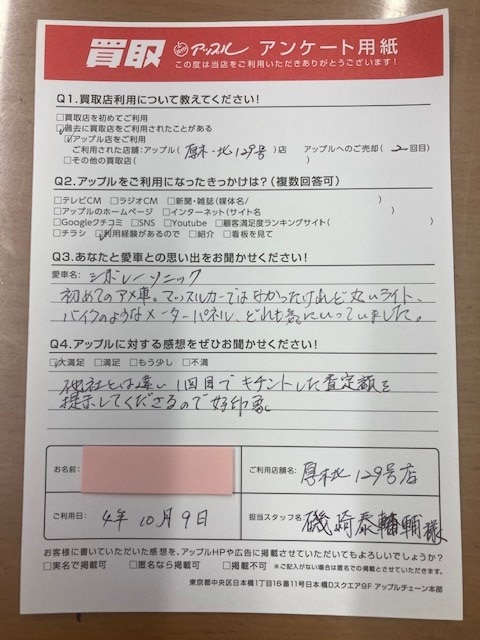 買取 アップル アンケート用紙
この度は当店をご利用いただきありがとうございます!
Q1.買取店利用について教えてください!
□買取店を初めてご利用
☑過去に買取店をご利用されたことがある
☑アップル店をご利用
ご利用された店舗:アップル( 厚木・北129号 )店 アップルへのご売却( 2 回目)
□その他の買取店( )
Q2.アップルをご利用になったきっかけは?(複数回答可)
□テレビCM □ラジオCM □新聞・雑誌(媒体名/ )
□アップルのホームページ □インターネット(サイト名 )
□Googleクチコミ □SNS □Youtube □顧客満足度ランキングサイト( )
□チラシ ☑利用経験があるので □紹介 □看板を見て
Q3.あなたと愛車との思い出をお聞かせください!
愛車名: シボレーソニック
初めてのアメ車。マッスルカーではなかったけれど丸いライト、
バイクのようなメーターパネル、どれも気にいっていました。
Q4.アップルに対する感想をぜひお聞かせください!
☑大満足 □満足 □もう少し □不満
他社とは違い1回目でキチントした査定額を
提示してくださるので好印象。
お名前:
ご利用店舗名: 厚木北129号店
ご利用日: 4年10月9日
担当スタッフ名: 磯崎泰輔様
お客様に書いていただいた感想を、アップルHPや広告に掲載させていただいてもよろしいでしょうか?
□実名で掲載可 □匿名なら掲載可 □掲載不可 ※ご記入がない場合は匿名での掲載とさせていただきます。
東京都中央区日本橋1丁目16番11号日本橋Dスクエア9F アップルチェーン本部